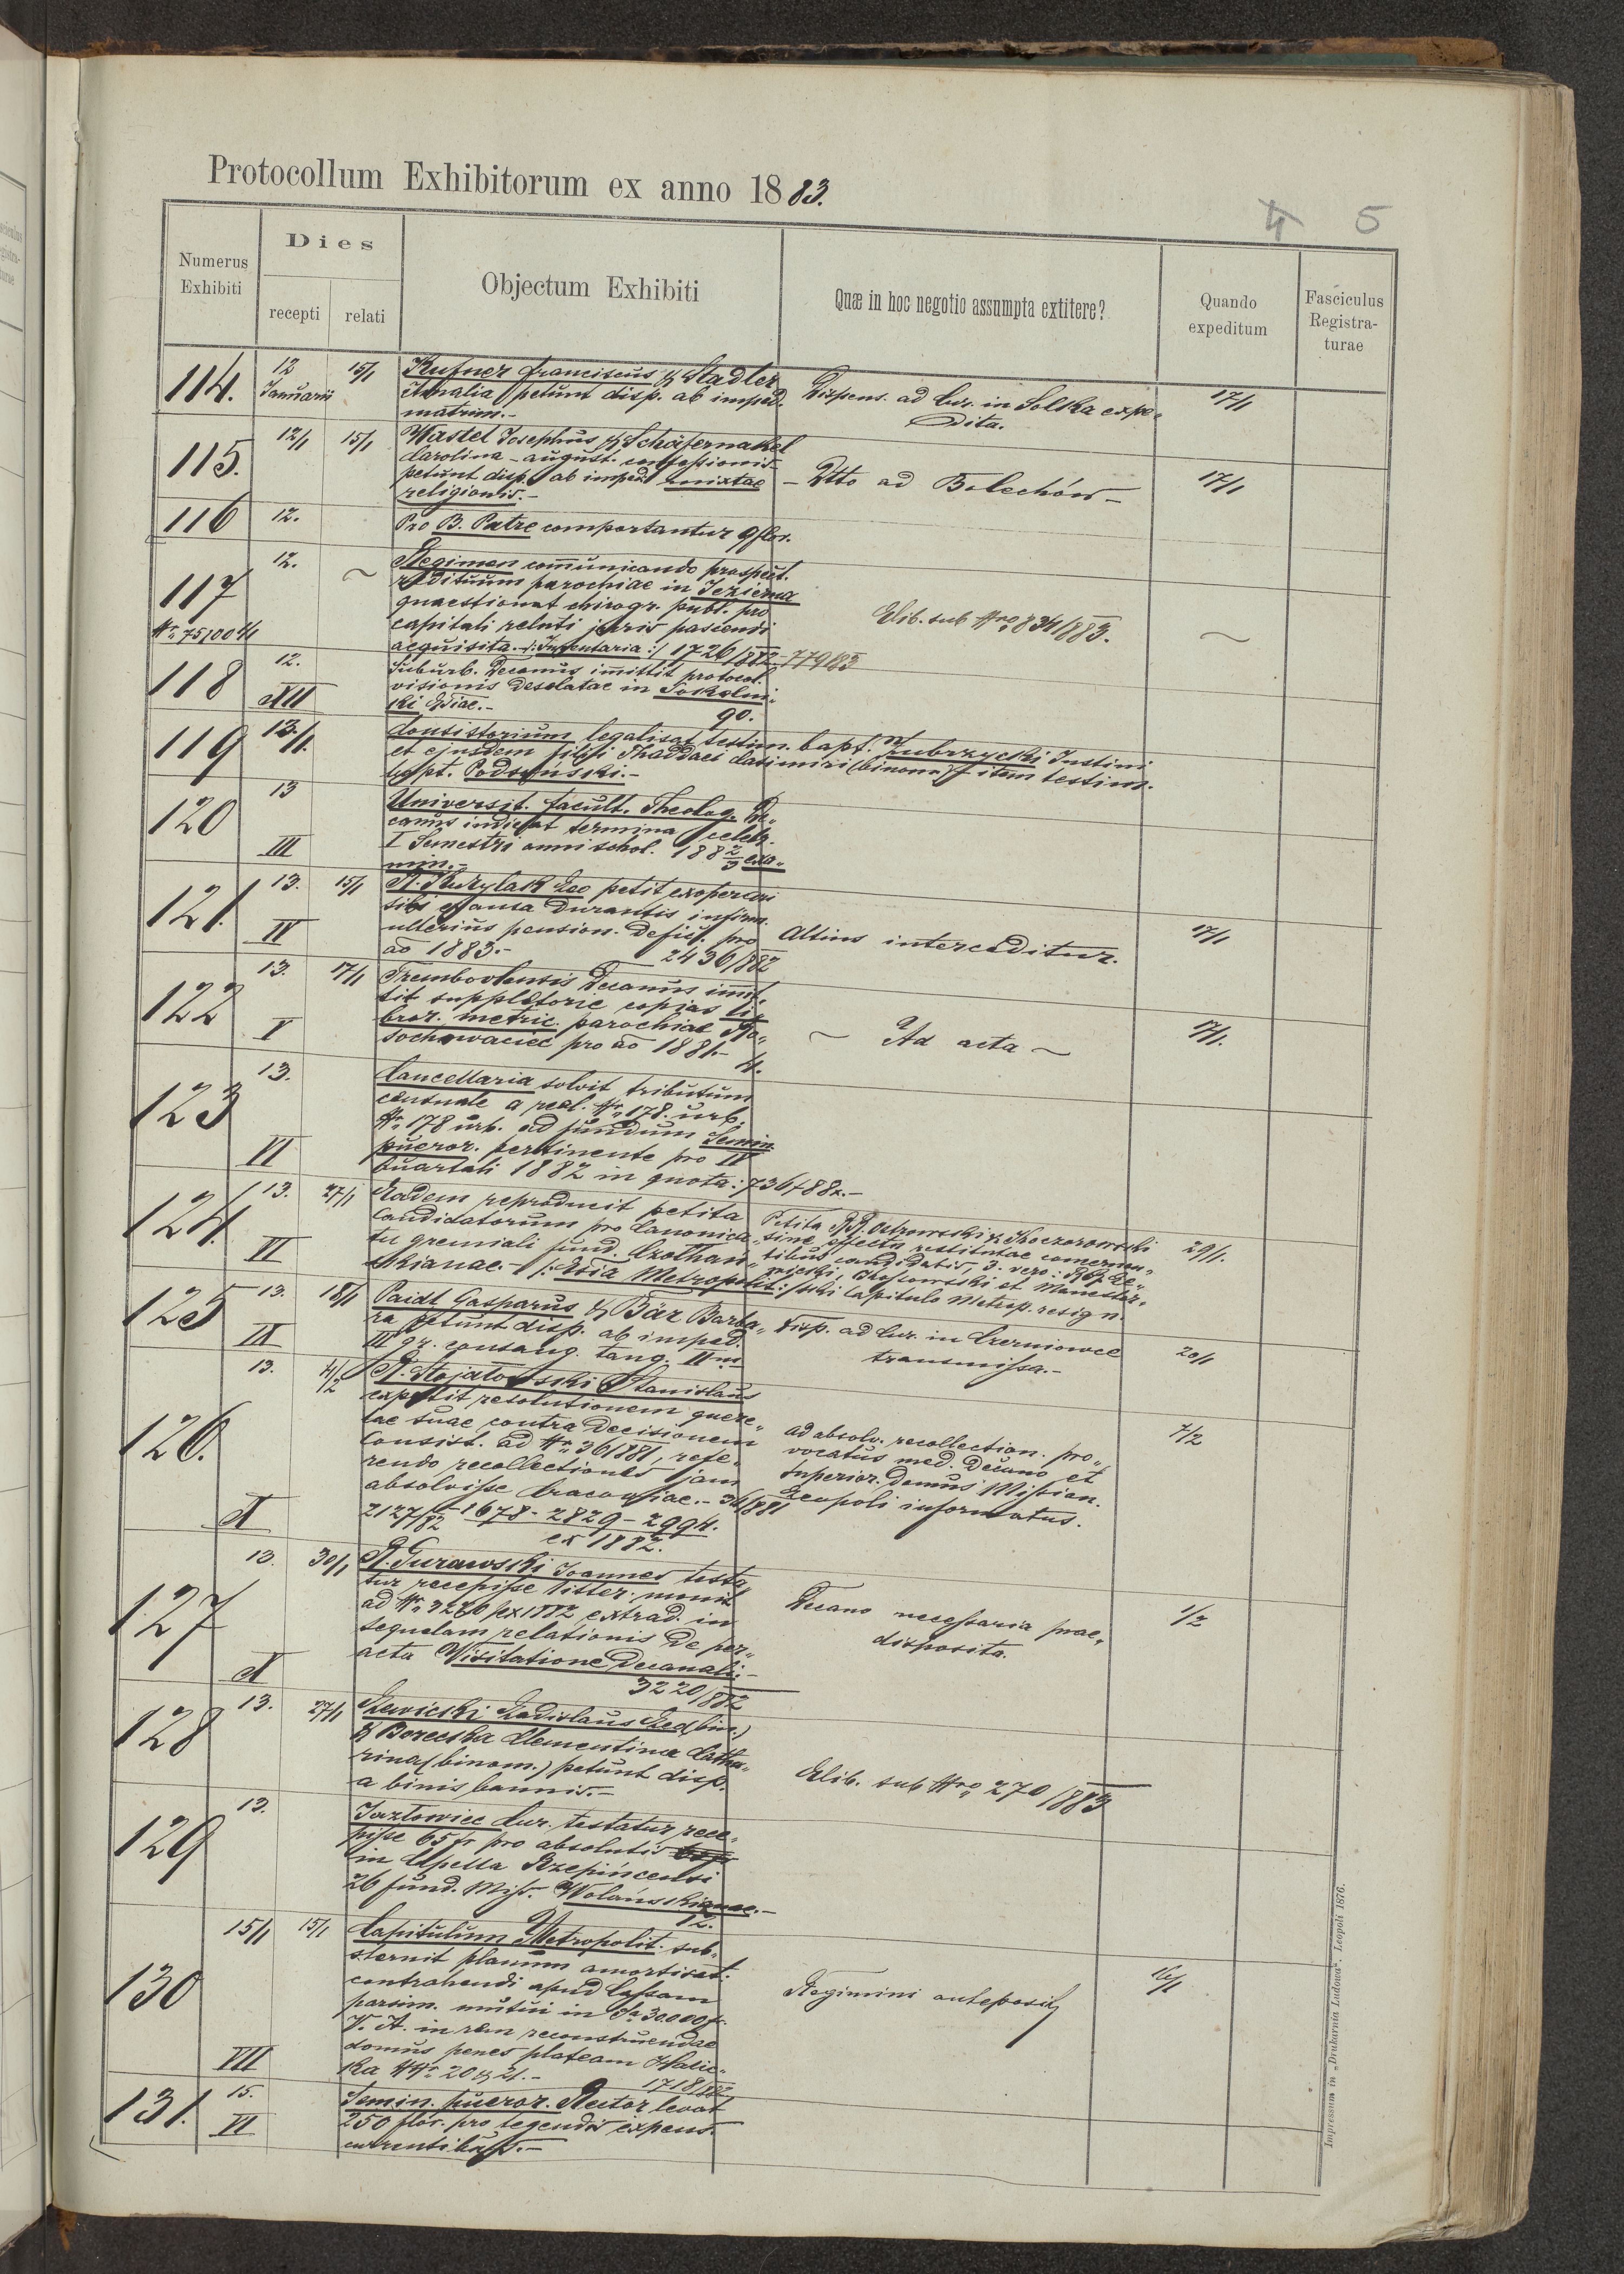 Protocollum Exhibitorum ex anno 1883.
4 5
Numerus Exhibiti
Dies
recepti
relati
Objectum Exhibiti
Quæ in hoc negotio assumpta extitere?
Quando expeditum
Fasciculus Registra-turae
114.
12 Januarii
15/1
Kufner Franciscus & Stadler
petunt disp. ab imped.
matrim.-
Dispens. ad Cur. in Solka expe„
dita.
17/1
115.
12/1
15/1
Wastel Josephus & Schäfernakel
Carolina - august. confessionis
petunt disp. ab imped. mixtae
religionis.-
- Dtto ad Bolechów -
17/1
116
12.
Pro B. Patre comportantur 9 flor.
117
Nr. 75100
12.
~
Regimen communicando prospect.
redituum parochiae in Jezierna
quaestionat chirogr. publ. pro
capitali reluti juris pascendi
acquisita. /: Inventaria :/ 1726/882 - 779/83
Elib. sub Nro 834/883.
~
118
12.
XII
Suburb. Decanus immittit protocol.
visionis desolatae in Sokolni„
ki Ediae.-
90.
119
13/1.
Consistorium legalisat testim. bapt. Zubrzycki Justini
et ejusdem filii Thaddaei Casimiri (binom) item testim.
bapt. Podsoński.-
120
13
III
Universit. facult. Theolog. De„
canus indicat termina celebr.
I Semestri anni schol. 1882/3 exa„
min.-
121.
13.
15/1
IV
R. Kurylak Leo petit exoperari
sibi ex causa durantis infirm.
ulterius pension. defic. pro
ao 1883.-
2436/882
Altius interceditur.
17/1
122
13.
17/1
I
Trembovlensis Decanus immit„
tit suppletorie copias li„
bror. metric. parochiae Ro„
sochowaciec pro ao 1881.-
4.
~ Ad acta ~
17/1.
123
13.
VI
Cancellaria solvit tributum
censuale a real. Nr. 178. urb.
Nr. 178 urb. ad fundum Semin.
pueror. pertinente pro IV
Quartali 1882 in quota: 736 f 88 x.-
124.
13.
27/1
VI
Eadem reproducit petita
Candidatorum pro Canonica„
tu gremiali fund. Crothan„
skianae.- /: Edia Metropolit:/
Petita RR. Ostrowski & Skoczorowski
sine effectu restitutae commen„
tibus candidatis, 3. vero: RR. Le„
et Manestar„
ski Capitulo Metrop. resign.
29/1.
125
13.
18/1
IX
Paidt Gasparus & Bär Barba„
ra petunt disp. ab imped.
III gr. consang. tang. II m
Disp. ad Cur. in Czerniowce
transmissa.-
20/1
126.
13.
4/2
X
R. Stojałowski Stanislaus
expetit resolutionem quere„
lae suae contra Decisionem
Consist. ad Nr. 36/881, refe„
rendo recollectiones jam
absolvisse Cracoviae.- 36/881
2127/82 1678 - 2829 - 2994.
ex 1882.
ad absolv. recollection. pro„
vocatus med. Decano et
Superior. Domus Mission.
Leopoli informatus.
7/2
127
13.
30/1
X
R. Gurawski Joannes testa„
tur recepisse litter. monit
ad Nr. 3220 ex 1882 extrad. in
sequelam relationis de per„
acta Visitatione Decanali.-
3220/882
Decano necessaria prae„
disposita.
1/2
128
13.
27/1
(bin.)
& Borecska Clementina Catha„
rina (binom.) petunt disp.
a binis bannis.-
Elib. sub Nro 270/883
129
13.
Jazłowiec Cur. testatur rece„
pisse 65 fr pro absolutis
in Capella Rzepińcensi
26 fund. Miss. Wolańskianae.-
12.
130
15/1
15/1
VII
Capitulum Metropolit. sub„
sternit planum amortisat.
contrahendi apud Cassam
parsim. mutui in Sa 30.000 fr.
V. A. in rem reconstruendae
domus penes plateam Halic„
ka NNr 20 & 21.-
1718/882
Regimini anteposit
16/1
131.
15.
VI
Semin. pueror. Rector levat
250 flor. pro tegendis expens.
currentibus.-
Impressum in „Drukarnia Ludowa". Leopoli 1876.